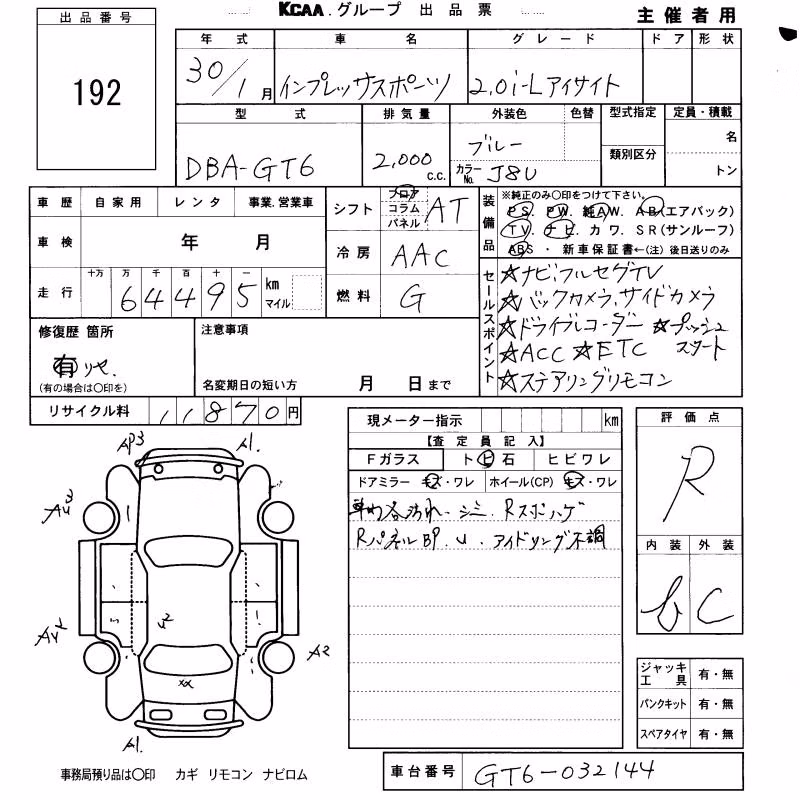 KCAA.グループ 出品票
主催者用
出品番号
192
年式 車名 グレード ドア 形状
30/1月 インプレッサスポーツ 2.0i-Lアイサイト
型式 排気量 外装色 色替 型式指定 定員・積載
DBA-GT6 2,000 c.c. ブルー 名
カラーNo. J8U 類別区分 トン
車歴 自家用 レンタ 事業.営業車
車検 年 月
走行 十万 万 千 百 十 一
64495 km マイル
シフト フロア コラム パネル AT
冷房 AAC
燃料 G
装備品
※純正のみ〇印をつけて下さい。
PS. PW. 純AW. AB(エアバック)
TV. ナビ. カワ. SR(サンルーフ)
ABS ・ 新車保証書←(注) 後日送りのみ
セールスポイント
☆ナビ,フルセグTV
☆バックカメラ,サイドカメラ
☆ドライブレコーダー ☆プッシュスタート
☆ACC ☆ETC
☆ステアリングリモコン
修復歴 箇所
有 リセ.
(有の場合は〇印を)
注意事項
名変期日の短い方 月 日まで
リサイクル料 11870円
現メーター指示 km
【査定員記入】
Fガラス ト ビ 石 ヒビワレ
ドアミラー キズ・ワレ ホイール(CP) キズ・ワレ
汚れ シミ Rスポ
Rパネル BP. U. アイドリング不調
評価点
R
内装 外装
b C
ジャッキ工具 有・無
パンクキット 有・無
スペアタイヤ 有・無
AP3 A1.
A2
A1.
××
事務局預り品は〇印 カギ リモコン ナビロム
車台番号 GT6-032144